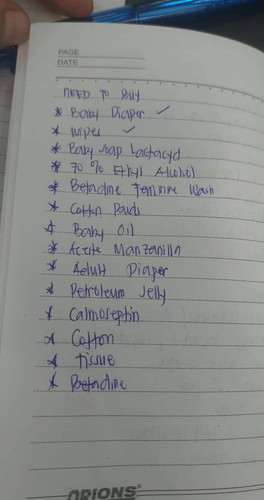 PAGE
DATE
NEED TO BUY
* Baby Diaper ✓
* Wipes ✓
* Baby soap Lactacyd
* 70 % Ethyl Alcohol
* Betadine Feminine Wash
* Cotton Pads
* Baby Oil
* Aceite Manzanilla
* Adult Diaper
* Petroleum Jelly
* Calmoseptin
* Cotton
* Tissue
* Betadine
ORIONS